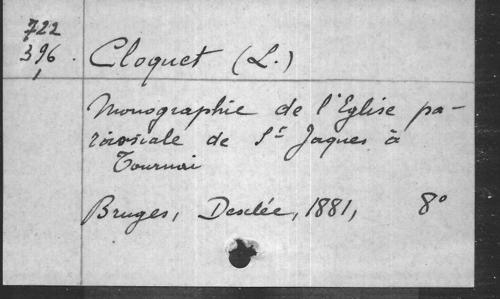 722
396. Cloquet (L.)
1
Monographie de l'Eglise pa-
roissiale de St Jaques à
Tournai
Bruges, Desclée, 1881, 8°